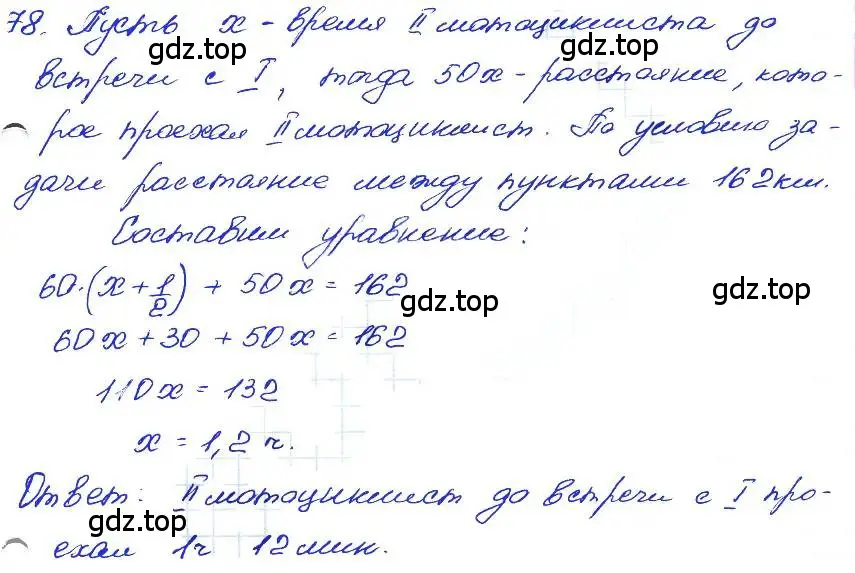 78. Пусть x - время II мотоциклиста до
gdz.top
gdz.top
встречи с I, тогда 50x - расстояние, кото-
рое проехал II мотоциклист. По условию за-
дачи расстояние между пунктами 162км.
Составим уравнение:
60·(x+1/2) + 50x = 162
gdz.top
gdz.top
60x+30+50x=162
110x=132
x = 1,2 ч.
Ответ: II мотоциклист до встречи с I про-
gdz.top
gdz.top
ехал 1ч 12мин.